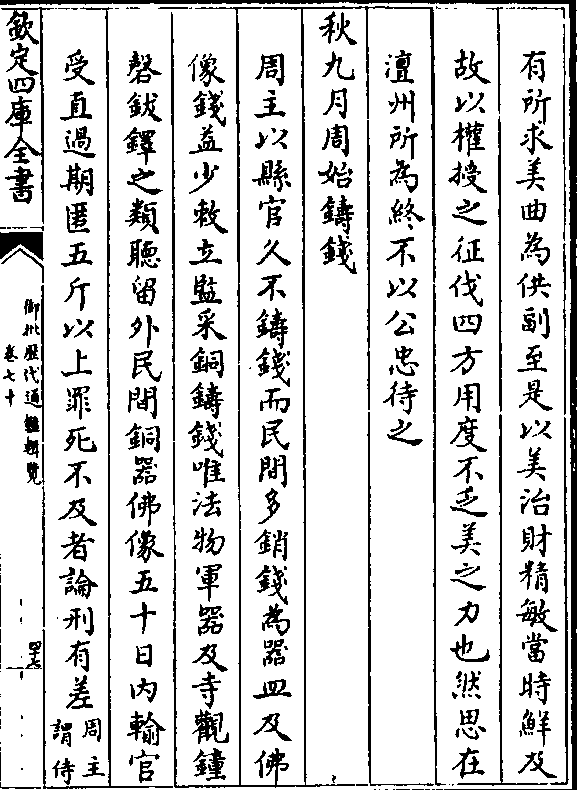 有所求美曲為供副至是以美治財精敏當時鮮及
故以權授之征伐四方用度不乏美之力也然思在
澶州所為終不以公忠待之
秋九月周始鑄錢
周主以縣官久不鑄錢而民間多銷錢為器皿及佛
像錢益少敕立監采銅鑄錢唯法物軍器及寺觀鐘
磬鈸鐸之類聽留外民間銅器佛像五十日内輸官
受直過期匿五斤以上罪死不及者論刑有差周主
謂侍
欽定四庫全書
御批歷代通鑑輯覽
卷七十
四十七